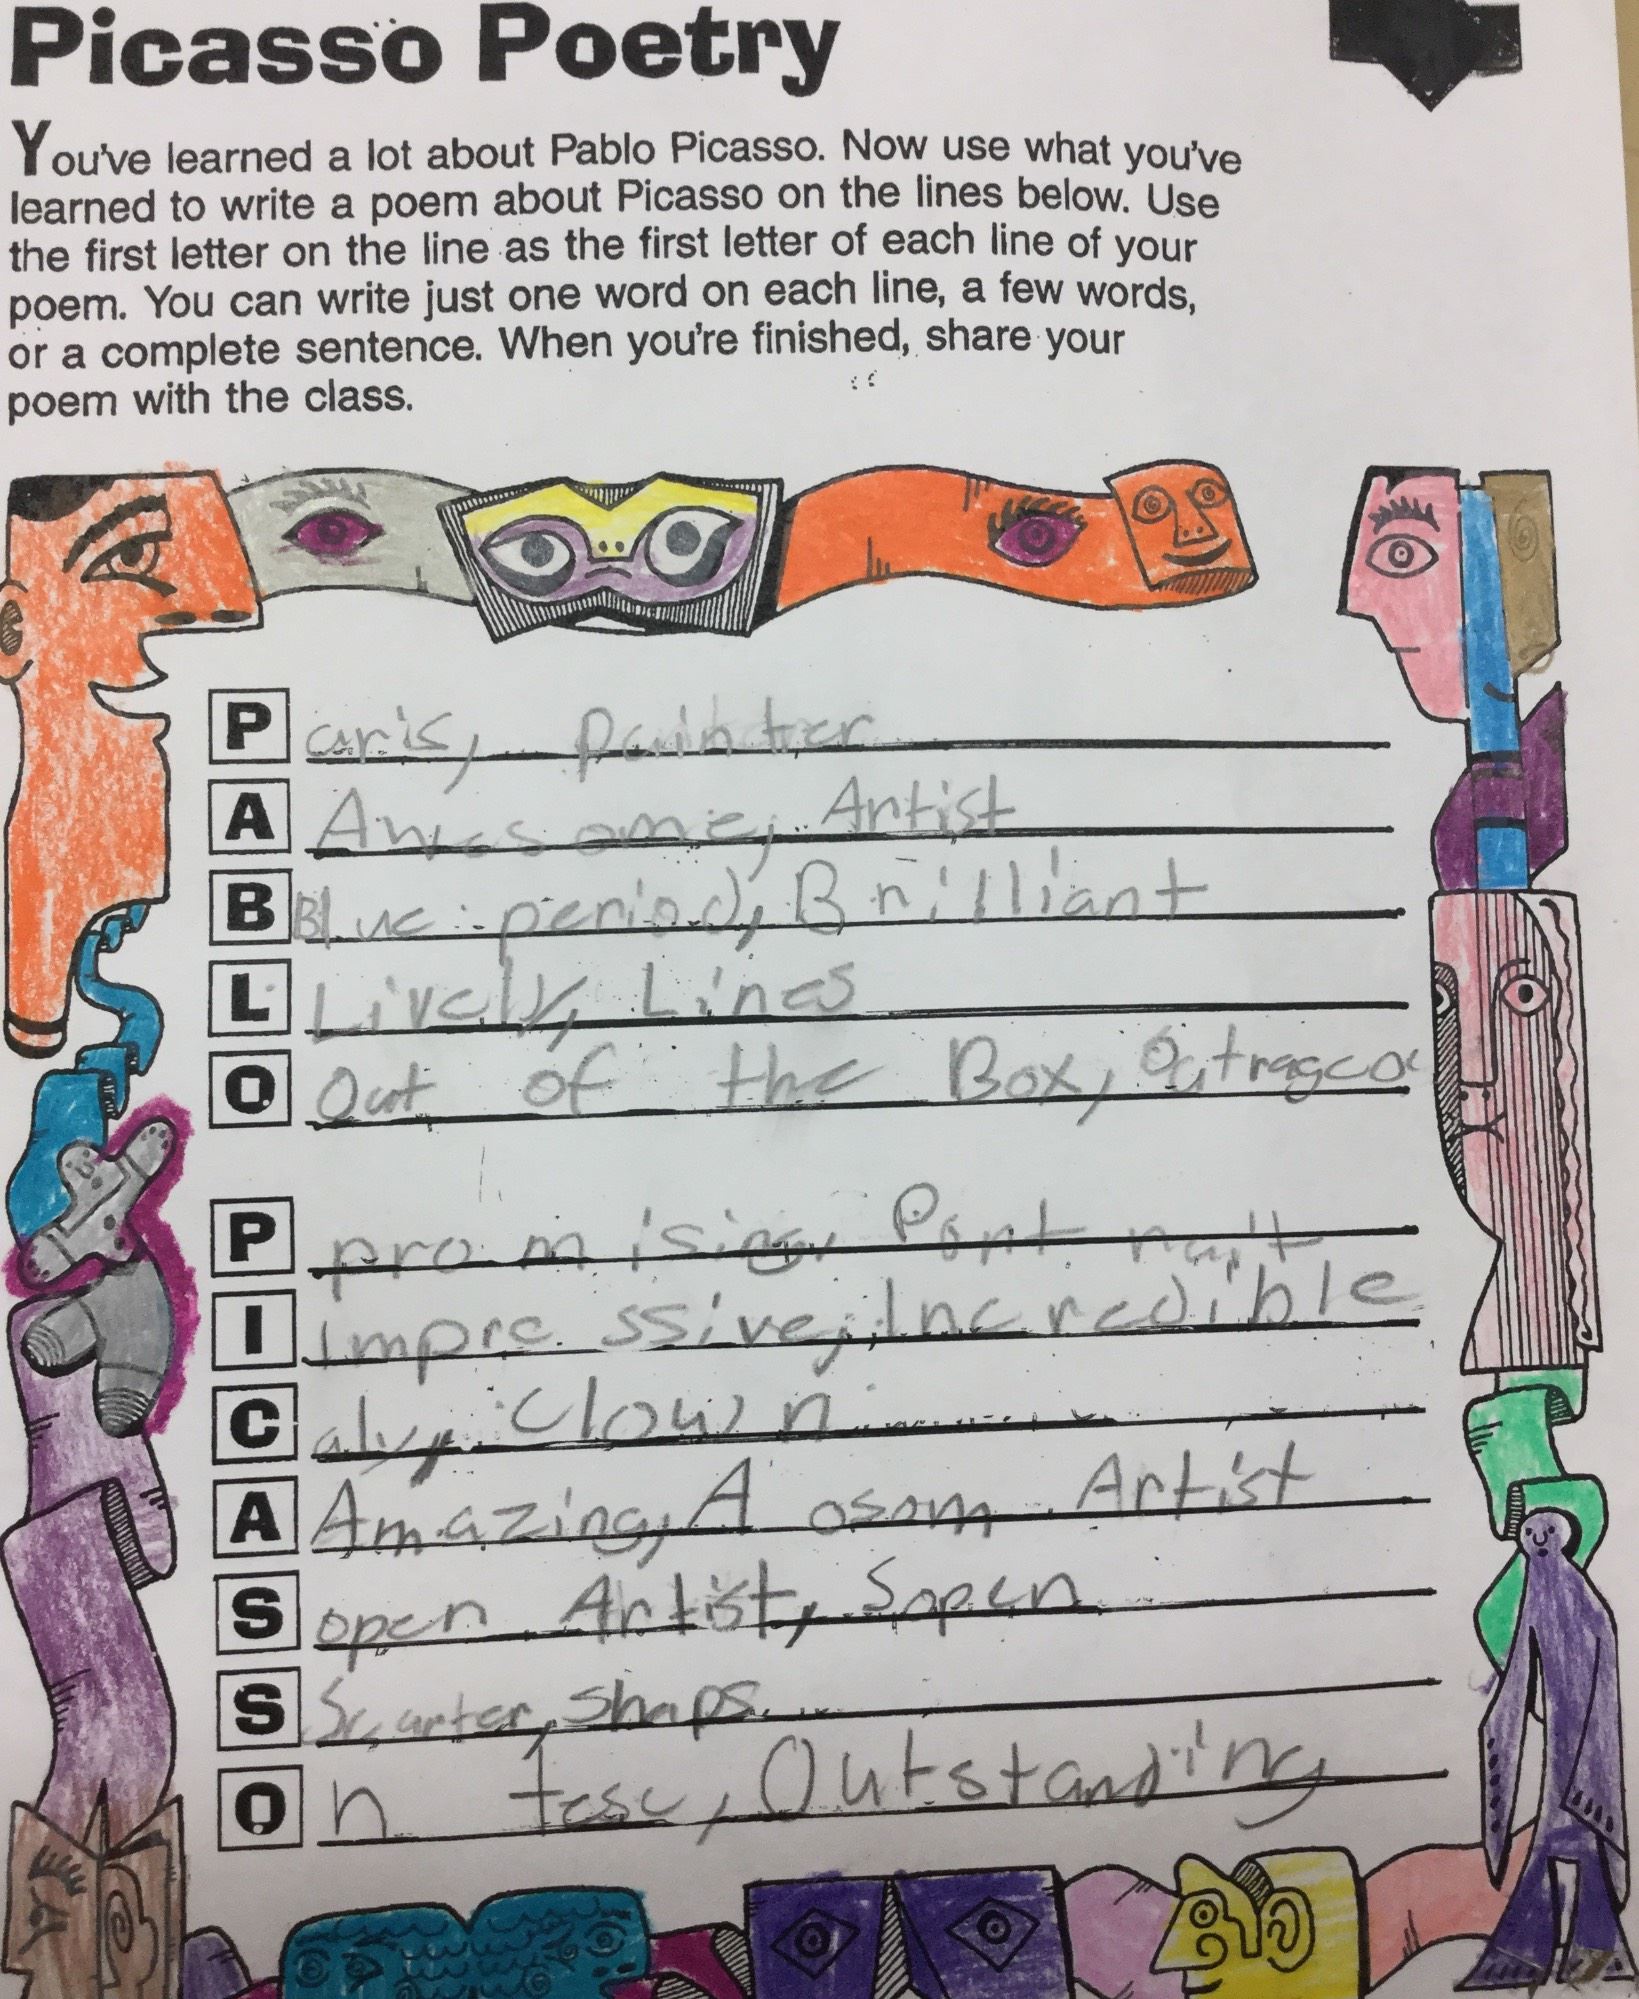 Picasso Poetry
You've learned a lot about Pablo Picasso. Now use what you've
learned to write a poem about Picasso on the lines below. Use
the first letter on the line as the first letter of each line of your
poem. You can write just one word on each line, a few words,
or a complete sentence. When you're finished, share your
poem with the class.
P aris, painter
A Awesome, Artist
B Blue period, Brilliant
L Lively, Lines
O Out of the Box,
P promising, Portrait
I Impressive, Incredible
C aly, Clown
A Amazing, A osom Artist
S open Artist, Sopen
S shaps
O n tese, Outstanding